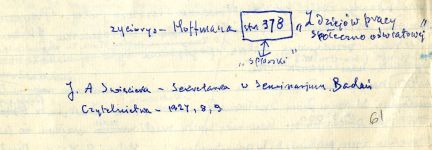 życiorys – Hoffmana str 378 „Z dziejów pracy
społeczno oświatowej”
„Spiośki”
J. A Święcicka – Sekretarka w Seminarjum Badań
Czytelnictwa – 1927, 8, 9
61